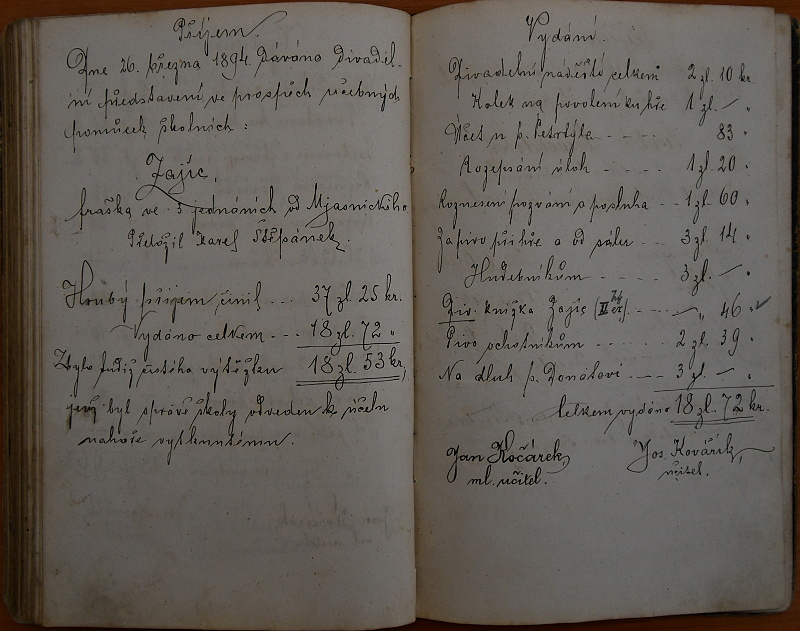 Příjem.
Dne 26. března 1894 dáváno divadel-
ní představení ve prospěch učebných
pomůcek školních :
Zajíc,
fraška ve 3 jednáních od Mjasnického
Přeložil Karel Štěpánek.
Hrubý příjem činil ... 37 zl. 25 kr.
Vydáno celkem --- 18 zl. 72 "
Zbylo tudíž čistého výtěžku 18 zl. 53 kr,
jenž byl správě školy odveden k účelu
nahoře vytknutému.
Vydání.
Divadelní nářadí celkem 2 zl. 10 kr.
Kolek na povolení ku hře 1 zl. — "
Účet u p. Petrtýla - - - - 83 "
Rozepsání úloh - - - - 1 zl. 20 "
Roznesení pozvání a posluha - - 1 zl. 60 "
Za pivo při hře a od sálu - - - 3 zl. 14 "
Hudebníkům - - - - - 3 zl. — "
Div. knížka Zajíc (II) - - - - — " 46 "
Pivo ochotníkům - - - 2 zl. 39 "
Na dluh p. Donátovi - - - 3 zl. — "
Celkem vydáno 18 zl. 72 kr.
Jan Kočárek, Jos. Kovářík,
ml. učitel. učitel.